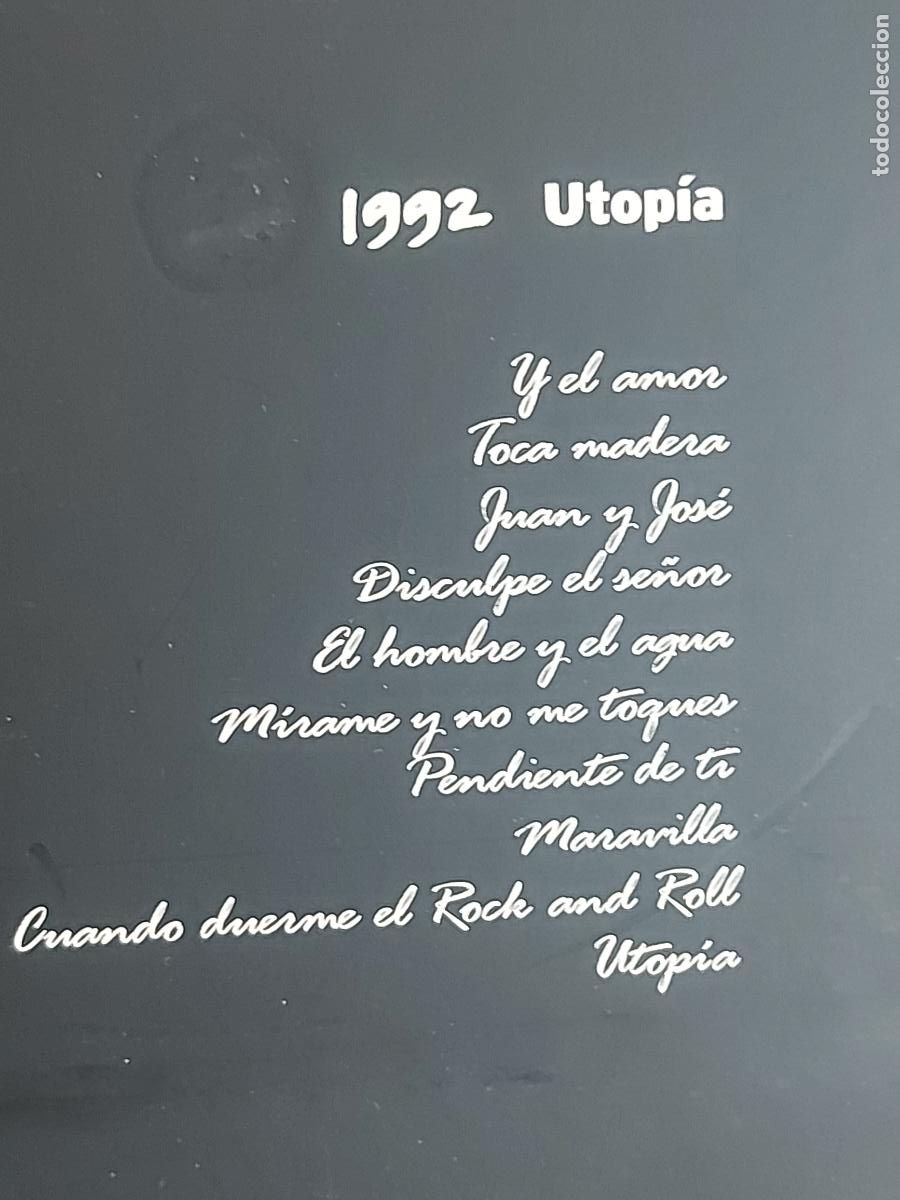 todocoleccion
1992 Utopía
Y el amor
Toca madera
Juan y José
Disculpe el señor
El hombre y el agua
Mírame y no me toques
Pendiente de ti
Maravilla
Cuando duerme el Rock and Roll
Utopía